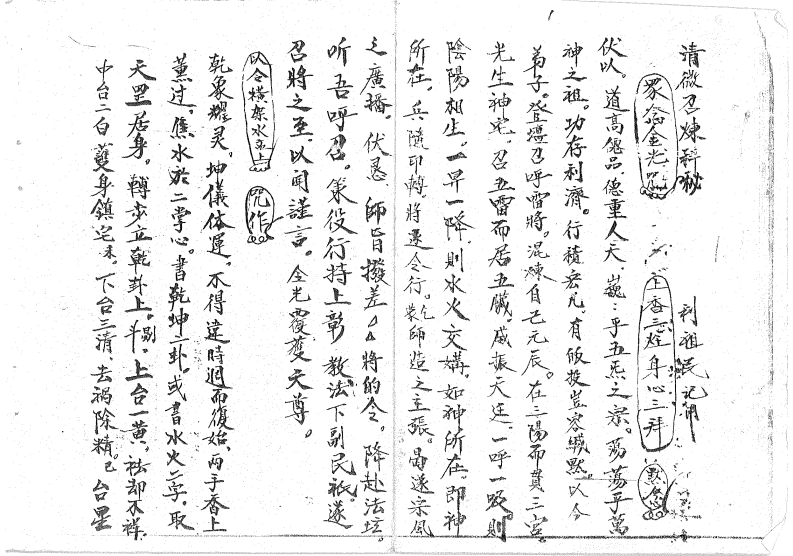 清微召煉科秘
利祖民記用
眾念金光咒 上香三炷身心三拜 默念
伏以。道高傀品。德重人天。巍乎五炁之宗。蕩蕩乎萬
神之祖。功存利濟。行積宏凡。有皈投豈容緘默。以今
弟子。登壇召呼雷將。混煉自己元辰。在三陽而貫三宮。
光生神宅。召五雷而居五臟。威振天廷。一呼一吸。則
陰陽相生。一昇一降。則水火交媾。如神所在。即神
所在。兵隨印轉。將逐令行。乞師造之主張。曷遂宗風
之廣播。伏恳 師旨撥差△△將的令。降赴法壇。
听吾呼召。策役行持上彰 教法下副民祇。遂
召將之至。以聞謹言。 金光覆護天尊。
以令橫架水盂上 咒作
乾象耀灵。坤儀体運。不得違時週而復始。兩手香上
薰过。焦水於二掌心。書乾坤二卦。或書水火二字。取
天罡居身。轉步立乾卦上。斗剔。上台一黃。祛却不祥。
中台二白 護身鎮宅。下台三清。去禍除精。台星